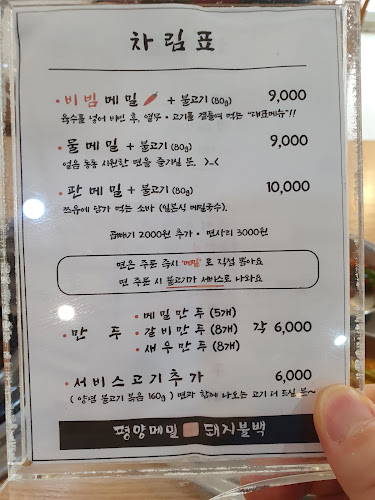 차림표
• 비빔메밀 + 불고기 (80g) 9,000
육수를 넣어 비빈 후, 열무·고기를 곁들여 먹는 "대표메뉴"!!
• 물메밀 + 불고기 (80g) 9,000
얼음 동동 시원한 면을 즐기실 분. >_<
• 판메밀 + 불고기 (80g) 10,000
쯔유에 담가 먹는 소바 (일본식 메밀국수).
곱빼기 2000원 추가 • 면사리 3000원
면은 주문 즉시 '메밀'로 직접 뽑아요
면 주문 시 불고기가 서비스로 나와요
• 메밀만두 (5개)
• 만두 • 갈비만두 (8개) 각 6,000
• 새우만두 (8개)
• 서비스고기추가 6,000
( 양념 불고기 볶음 160g ) 면과 함께 나오는 고기 더 드실 분~
평양메밀 돼지불백